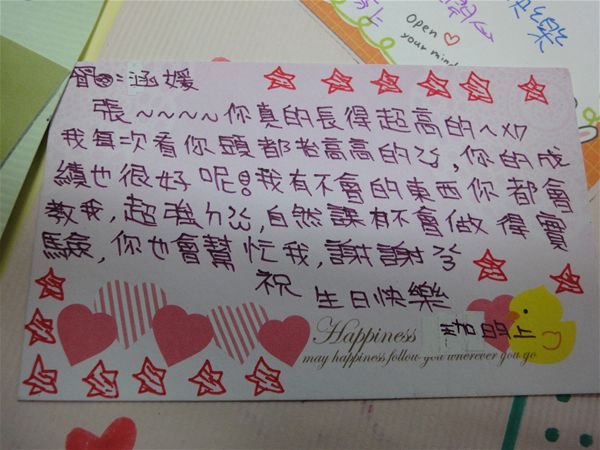 快樂
Open
your mind
涵媛
張~~~~你真的長得超高的ㄟ
我每次看你頭都抬高高的,你的成
績也很好呢!我有不會的東西你都會
教我,超強ㄉ,自然課有不會做得實
驗,你也會幫忙我,謝謝
祝
生日快樂
Happiness
may happiness follow you wherever you go